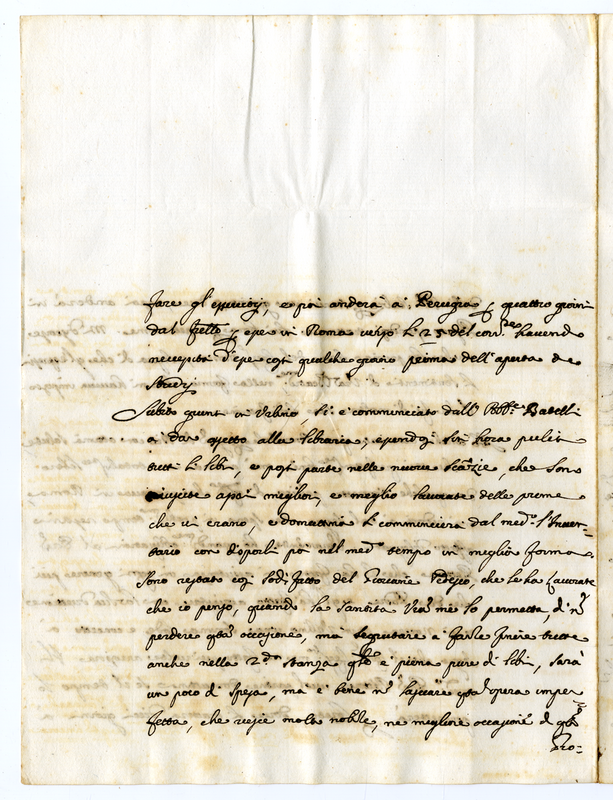 fare gl'essercizij, e poi anderà à Perugia p quattro giorni
dal fratello p esser in Roma verso li 25 del corr.te havendo
necessità d'esser costì qualche giorno prima dell'aperta de
Studij
Subito giunti in Urbino, si è communciato dall'
à dar assetto alla libraria, essendosi sin hora puliti
tutti li libri, e posti parte nelle nuove Scanzie, che sono
riuscite assai migliori, e meglio lavorate delle prime
che vi erano, e domattina si comincierà dal med.o l'Inven=
tario con disporli poi nel med.o tempo in miglior forma.
Sono restato così sodisfatto del Giovane Tedesco, che le ha lavorate
che io penso, quando la Santità Vra me lo permetta, di nō
perdere qta occasione, mà seguitare à farle finire tutte
anche nella 2.da stanza qle è piena pure di libri, sarà
un poco di spesa, mà è bene nō lasciare qta opera imper
fetta, che riesce molto nobile, ne migliore occasione di qta